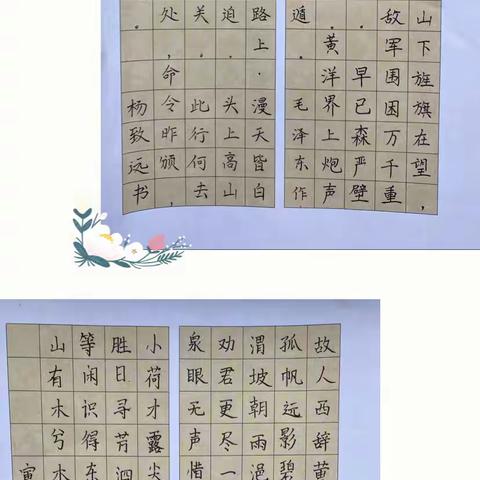 山下旌旗在望，
敌军围困万千重
。早已森严壁
。黄洋界上炮声
遁。毛泽东作
路上·漫天皆白
迫。头上高山
关，此行何去
处，命令昨颁，
。杨致远书
故人西辞黄
孤帆远影碧
渭坡朝雨浥
劝君更尽一
泉眼无声惜
小荷才露尖
胜日寻芳泗
等闲识得东
山有木兮木
寅